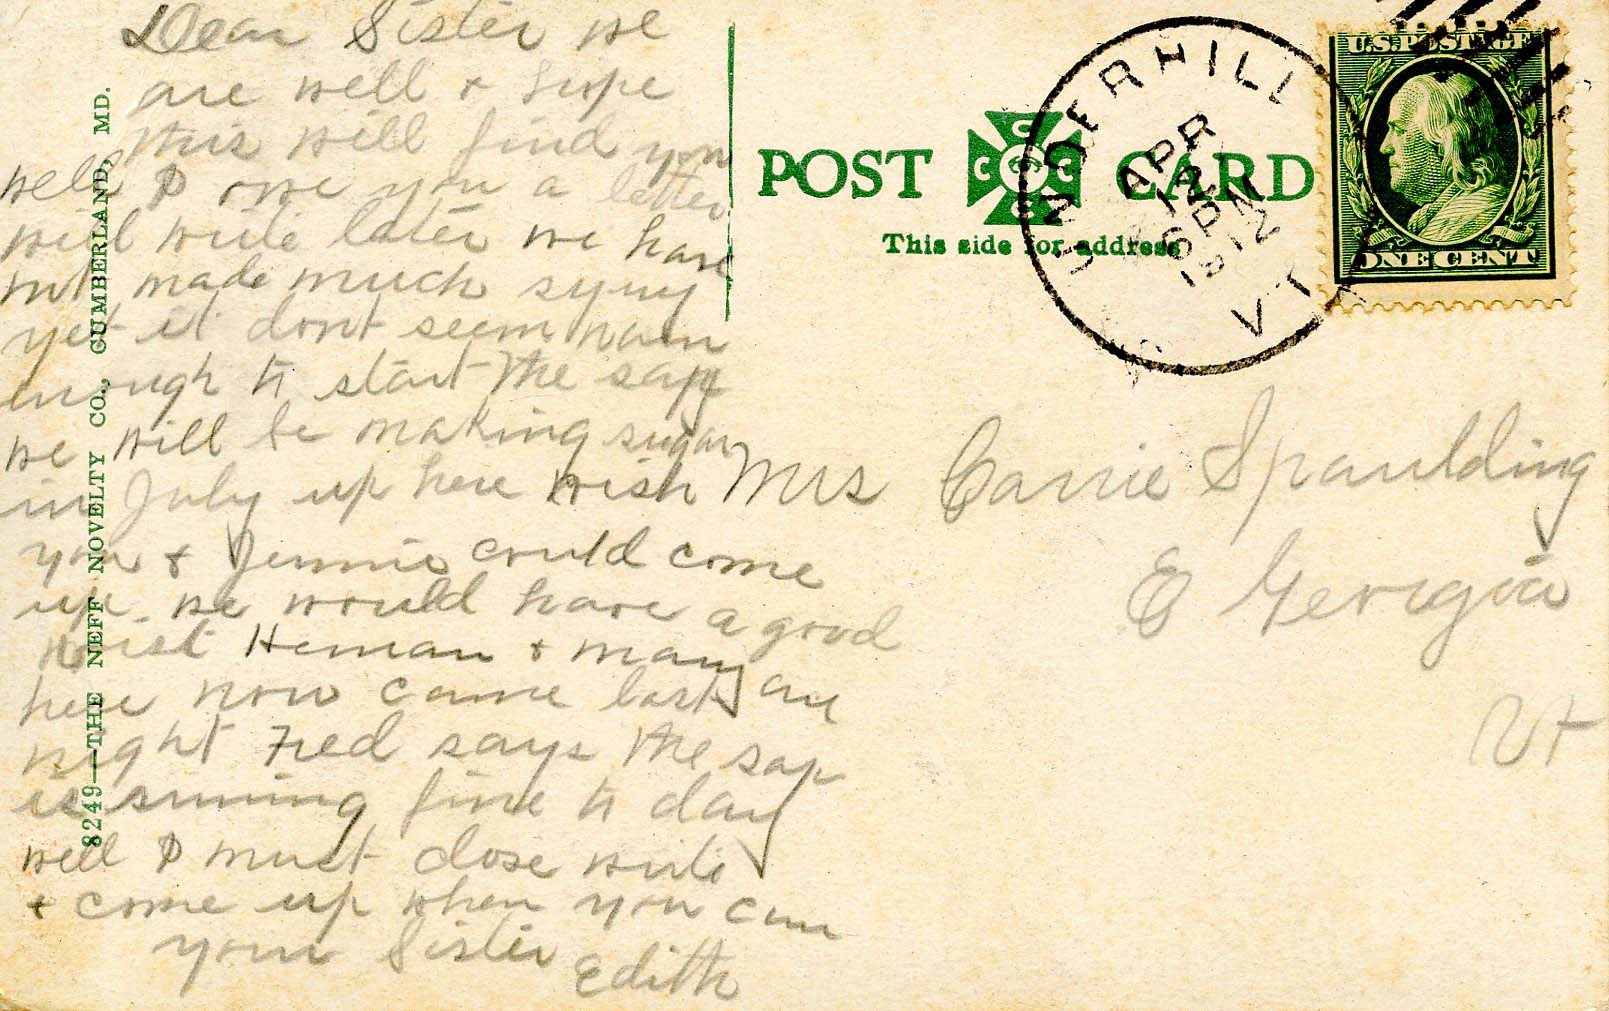 Dear Sister we
are well & hope
this will find you
well I owe you a letter
will write later we have
not made much syruy
yet it dont seem warm
enough to start the sapp
we will be making sugar
in July up here wish
you & Jennie could come
up. we would have a good
visit Heman & Mary are
here now came last
night Fred says the sap
is running fine to day
well I must close write
& come up when you can
your Sister Edith
8249—THE NEFF NOVELTY CO., CUMBERLAND, MD.
POST CARD
This side for address
UNDERHILL
APR
12
6 PM
1912
VT
U.S. POSTAGE
ONE CENT
Mrs Carrie Spaulding
E Georgia
Vt